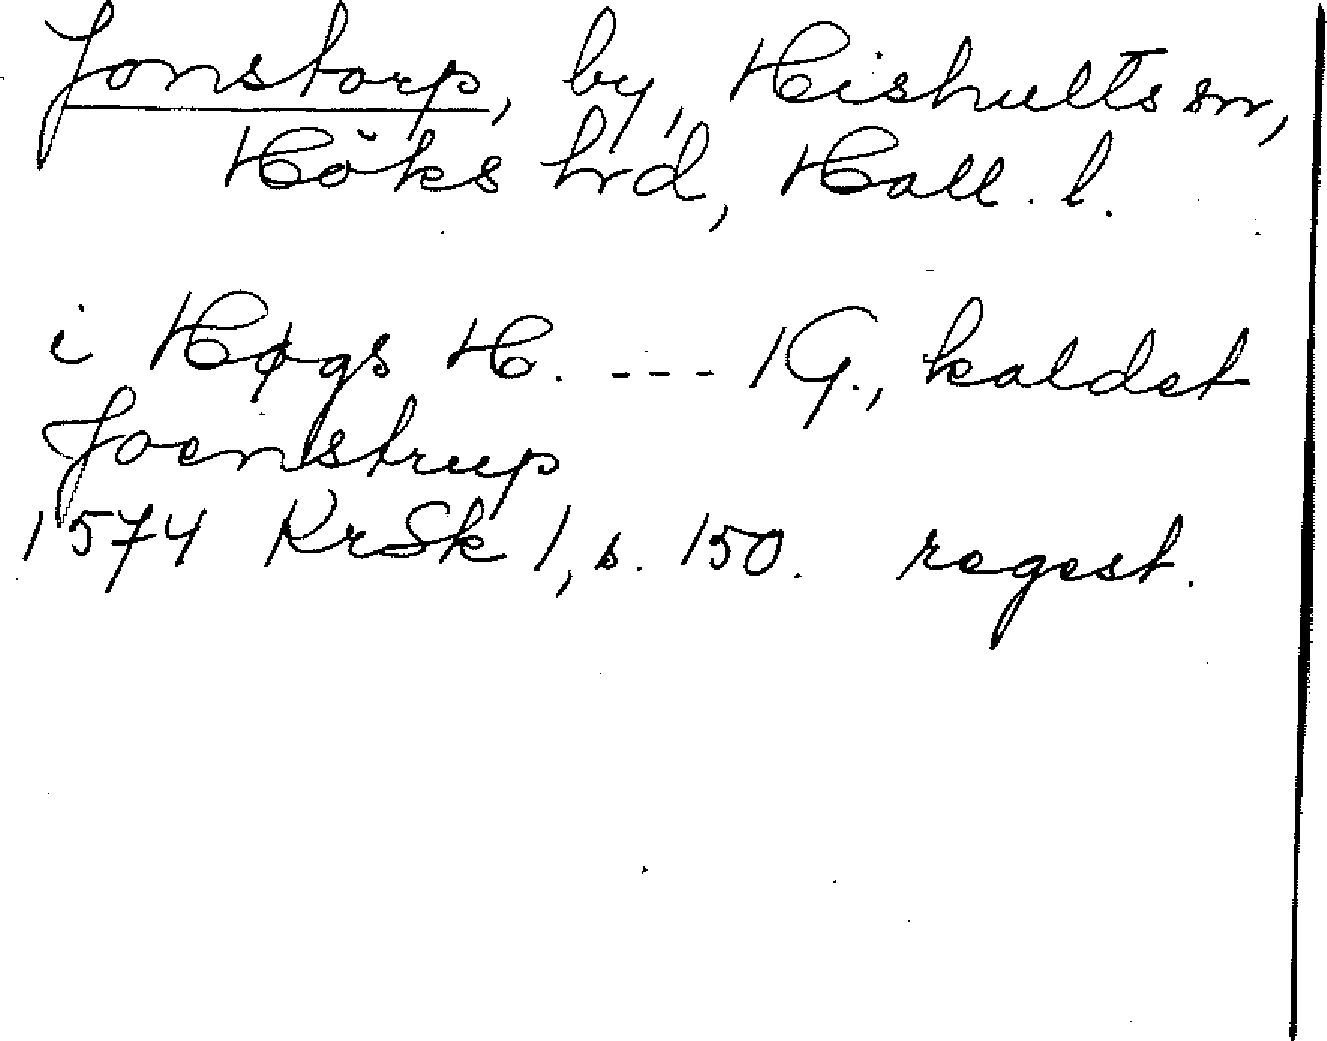 Jonstorp, by, Hishults sn,
Höks hrd, Hall. l.
i Høgs H. --- 1 G., kaldet
Joenstrup
1574 KrSk 1, s. 150. regest.